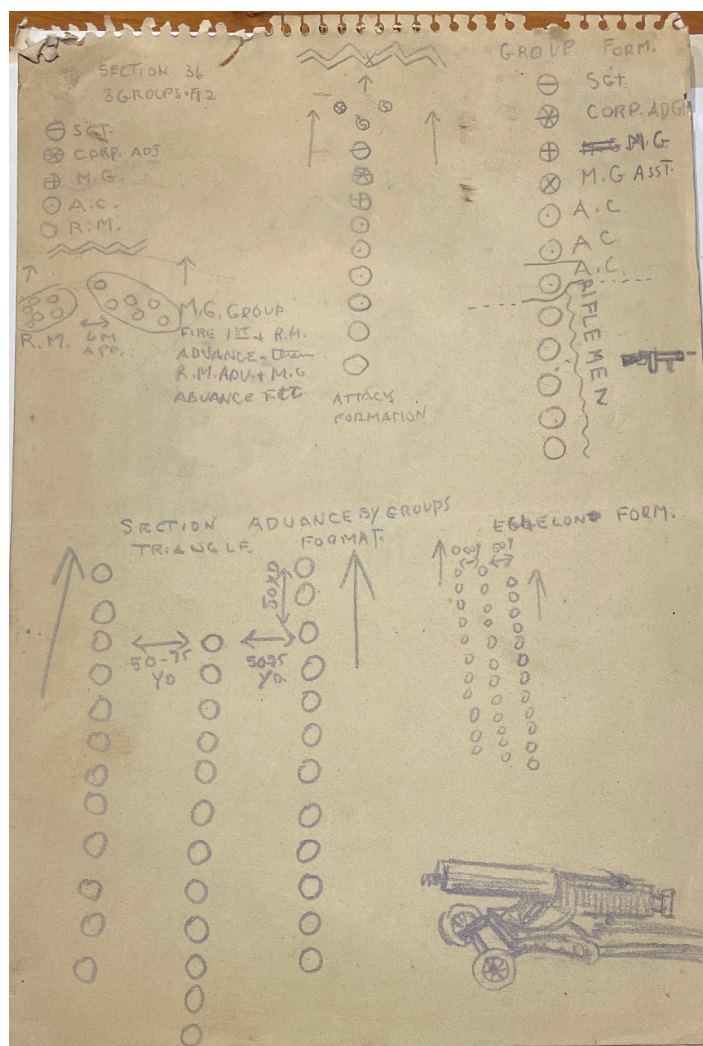 SECTION 36
3 GROUPS · 12
SGT.
CORP. ADJ.
M.G.
A.C.
R.M.
R.M.
6M
APP.
M.G. GROUP
FIRE 1ST + R.M.
ADVANCE - then
R.M. ADV. + M.G
ADVANCE
ATTACK
FORMATION
GROUP FORM.
SGT.
CORP. ADG
M.G
M.G ASST.
A.C
A C
A.C.
RIFLEMEN
SECTION ADVANCE BY GROUPS
TRIANGLE FORMAT.
50-75
YD
50 75
YD.
50YD
ECHELON FORM.
50Y 50Y